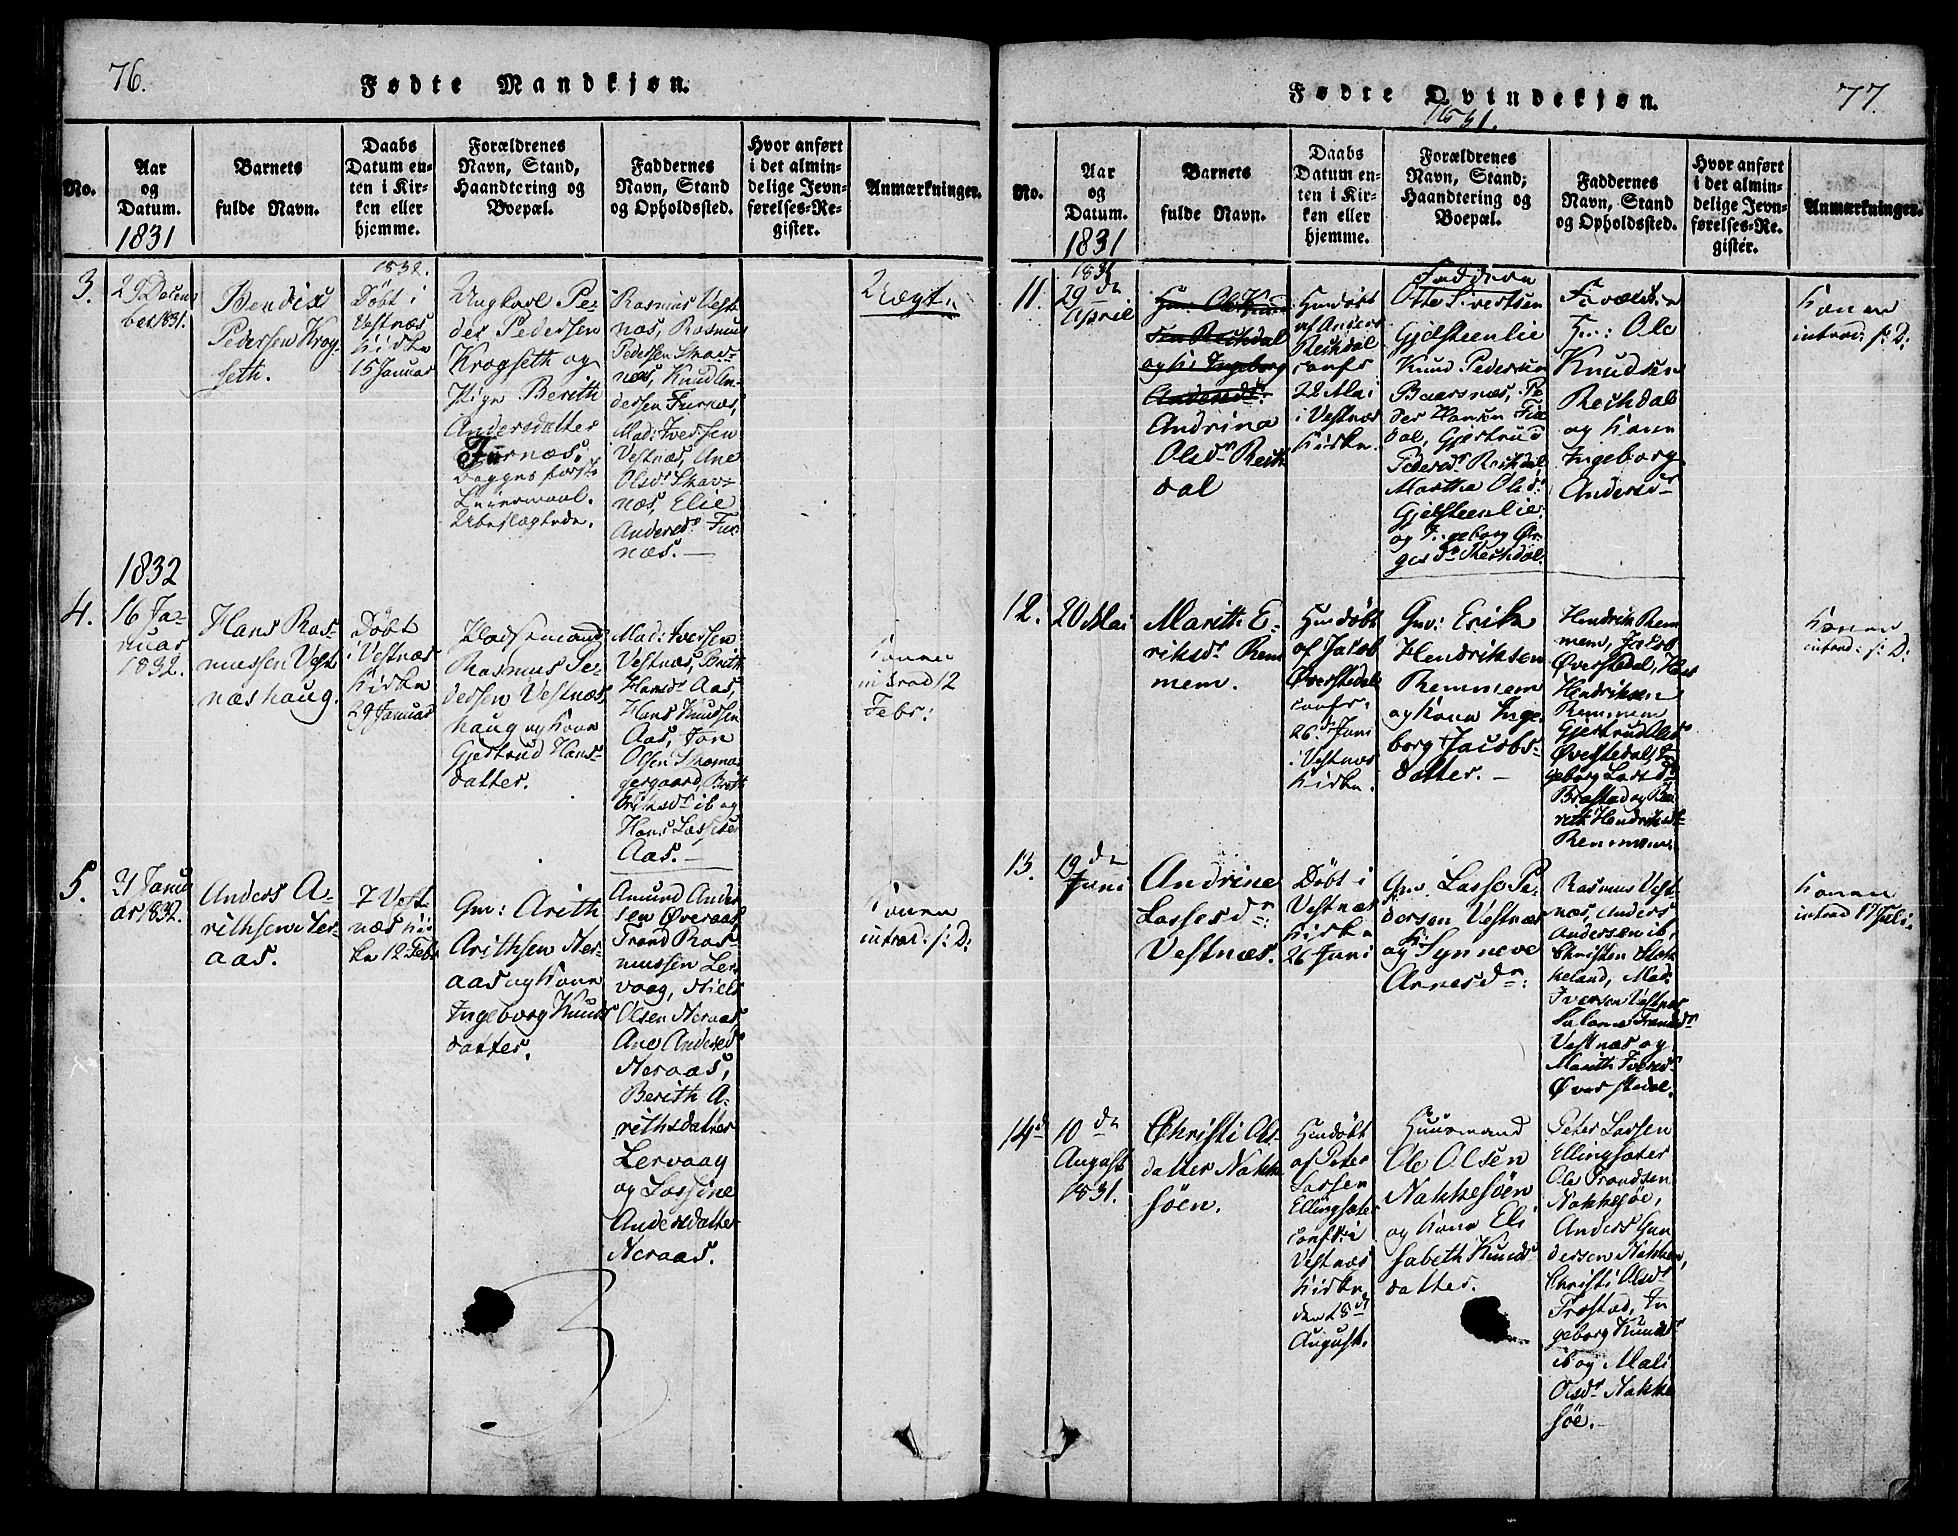 76.
Fødte Mandkjøn.
No.
Aar
og
Datum.
1831
Barnets
fulde Navn.
Daabs
Datum en-
ten i Kir-
ken eller
hjemme.
Forældrenes
Navn, Stand,
Haandtering og
Boepæl.
Faddernes
Navn, Stand
og Opholdssted.
Hvor anført
i det almin-
delige Jevn-
førelses-Re-
gister.
Anmærkninger.
3.
29 Decem
ber 1831.
Bendix
Pedersen Krog-
seth.
1832.
Døbt i
Vestnæs
Kirke
15 Januar
Ungkarl Pe-
der Pedersen
Krogseth og
Pige Berith
Andersdatter
Furnæs,
Begges første
Leiermaal.
Ubeslægtede.
Rasmus Vest
næs, Rasmus
Pedersen Skav-
næs, Knud An-
dersen Furnæs,
Mad: Iversen
Vestnæs, Ane
Olsdr Skav-
næs, Elie
Andersdr Fur-
næs. —
Uægt.
1832
4.
16 Ja-
nuar
1832.
Hans Ras-
mussen Vest
næshaug.
Døbt
i Vestnæs
Kirke
29 Januar
Pladsemand
Rasmus Pe-
dersen Vestnæs
haug og Kone
Gjertrud Hans-
datter.
Mad: Iversen
Vestnæs, Brith
Hansdr Aas,
Hans Knudsen
Aas, Jon
Olsen
gergaard, Brith
Eriksdr ib og
Hans Lassesen
Aas. —
Konen
introd 12
Febr:
5.
21 Janu
ar 1832.
Anders A-
rithsen Ner-
aas.
I Vest
næs Kir
ke 12 Febr
Gm: Arith
Arithsen Ner-
aas og Kone
Ingeborg Knuds
datter.
Amund Ander
sen Øveraas,
Trond Ras-
mussen Ler
vaag, Niels
Olsen Neraas,
Ane Andersdr
Neraas,
Berith A-
rithsdatter
Lervaag
og Lassine
Andersdatter
Neraas.
Konen
introd: s: D:
Fødte Qvindekjøn.
1831.
77.
No.
Aar
og
Datum.
1831
Barnets
fulde Navn.
Daabs
Datum en-
ten i Kir-
ken eller
hjemme.
Forældrenes
Navn, Stand,
Haandtering og
Boepæl.
Faddernes
Navn, Stand
og Opholdssted.
Hvor anført
i det almin-
delige Jevn-
førelses-Re-
gister.
Anmærkninger.
11.
1831
29 de
April
Gm: Ole Knud
sen Rechdal
og K: Ingeborg
Andersdr.
Andrina
Olsdr Rech
dal
Hiemdøbt
af Anders
Rechdal
confr
22 Mai
i Vestnæs
Kirke.
Faddere
Otte Sivertsen
Gjelsteenlie
Knud Pedersen
Baarsnæs, Pe
der Hansen Fie
dal, Gjertrud
Pedersdr Rechdal
Martha Olsdr
Gjelsteenlie
og Ingeborg Ør-
gesdr Rechdal.
Forældre
Gm: Ole
Knudsen
Rechdal
og Kone
Ingeborg
Andersdr
Konen
introd: s: D:
12.
20 Mai
Marith E-
riksdr Rem
mem.
Hiemdøbt
af Jacob
Øverstedal
confr.
26. Juni
i Vestnæs
Kirke.
Gm: Erik
Hendriksen
Remmem
og Kone Inge-
borg Jacobs-
datter. —
Hendrik Rem
mem, Jacob
Øverstedal, Hans
Hendriksen
Remmem
Gjertrud Olsdr
Øverstedal, In
geborg Larsdr
Brastad og Be
rith Hendriksdr
Remmem.
Konen
introd: s: D:
13.
19 de
Juni
Andrine
Lassesdr:
Vestnæs.
Døbt i
Vestnæs
Kirke
26 Juni
Gm: Lasse Pe-
dersen Vestnæs
og K: Synneve
Arnesdr:
Rasmus Vest-
næs, Anders
Andersen ib,
Christen Stok
keland, Mad.
Iversen Vestnæs
Salome
Vestnæs og
Marith Iversdr
Øverstedal.
Konen
introd 17 Juli.
14.
10 de
August
1831.
Christi Ols-
datter Nakke
søen.
Hiemdøbt
af Peter
Larsen
Ellingsæter
confr: i
Vestnæs
Kirke
den 28 de
August.
Huusmand
Ole Olsen
Nakkesøen
og Kone Eli
sabeth Knuds
datter.
Peter Larsen
Ellingsæter
Ole Trondsen
Nakkesøe,
Anders Gun
dersen Nakken,
Christi Olsdr
Frostad, In
geborg Knudsdr
ib og Mali
Olsdr Nakke
søe. —